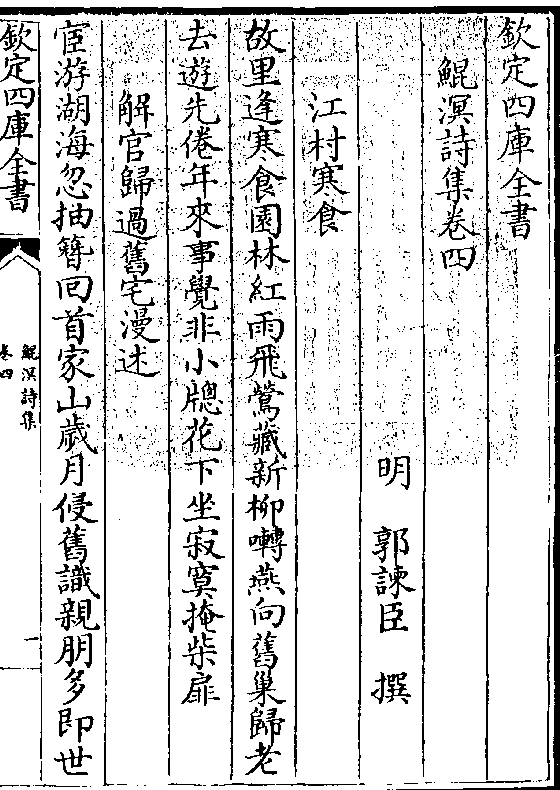 欽定四庫全書
鯤溟詩集卷四
明 郭諫臣 撰
江村寒食
故里逢寒食園林紅雨飛鶯藏新柳囀燕向舊巢歸老
去遊先倦年來事覺非小牕花下坐寂寞掩柴扉
解官歸過舊宅漫述
宦游湖海忽抽簪回首家山歲月侵舊識親朋多即世
欽定四庫全書
鯤溟詩集
卷四
一